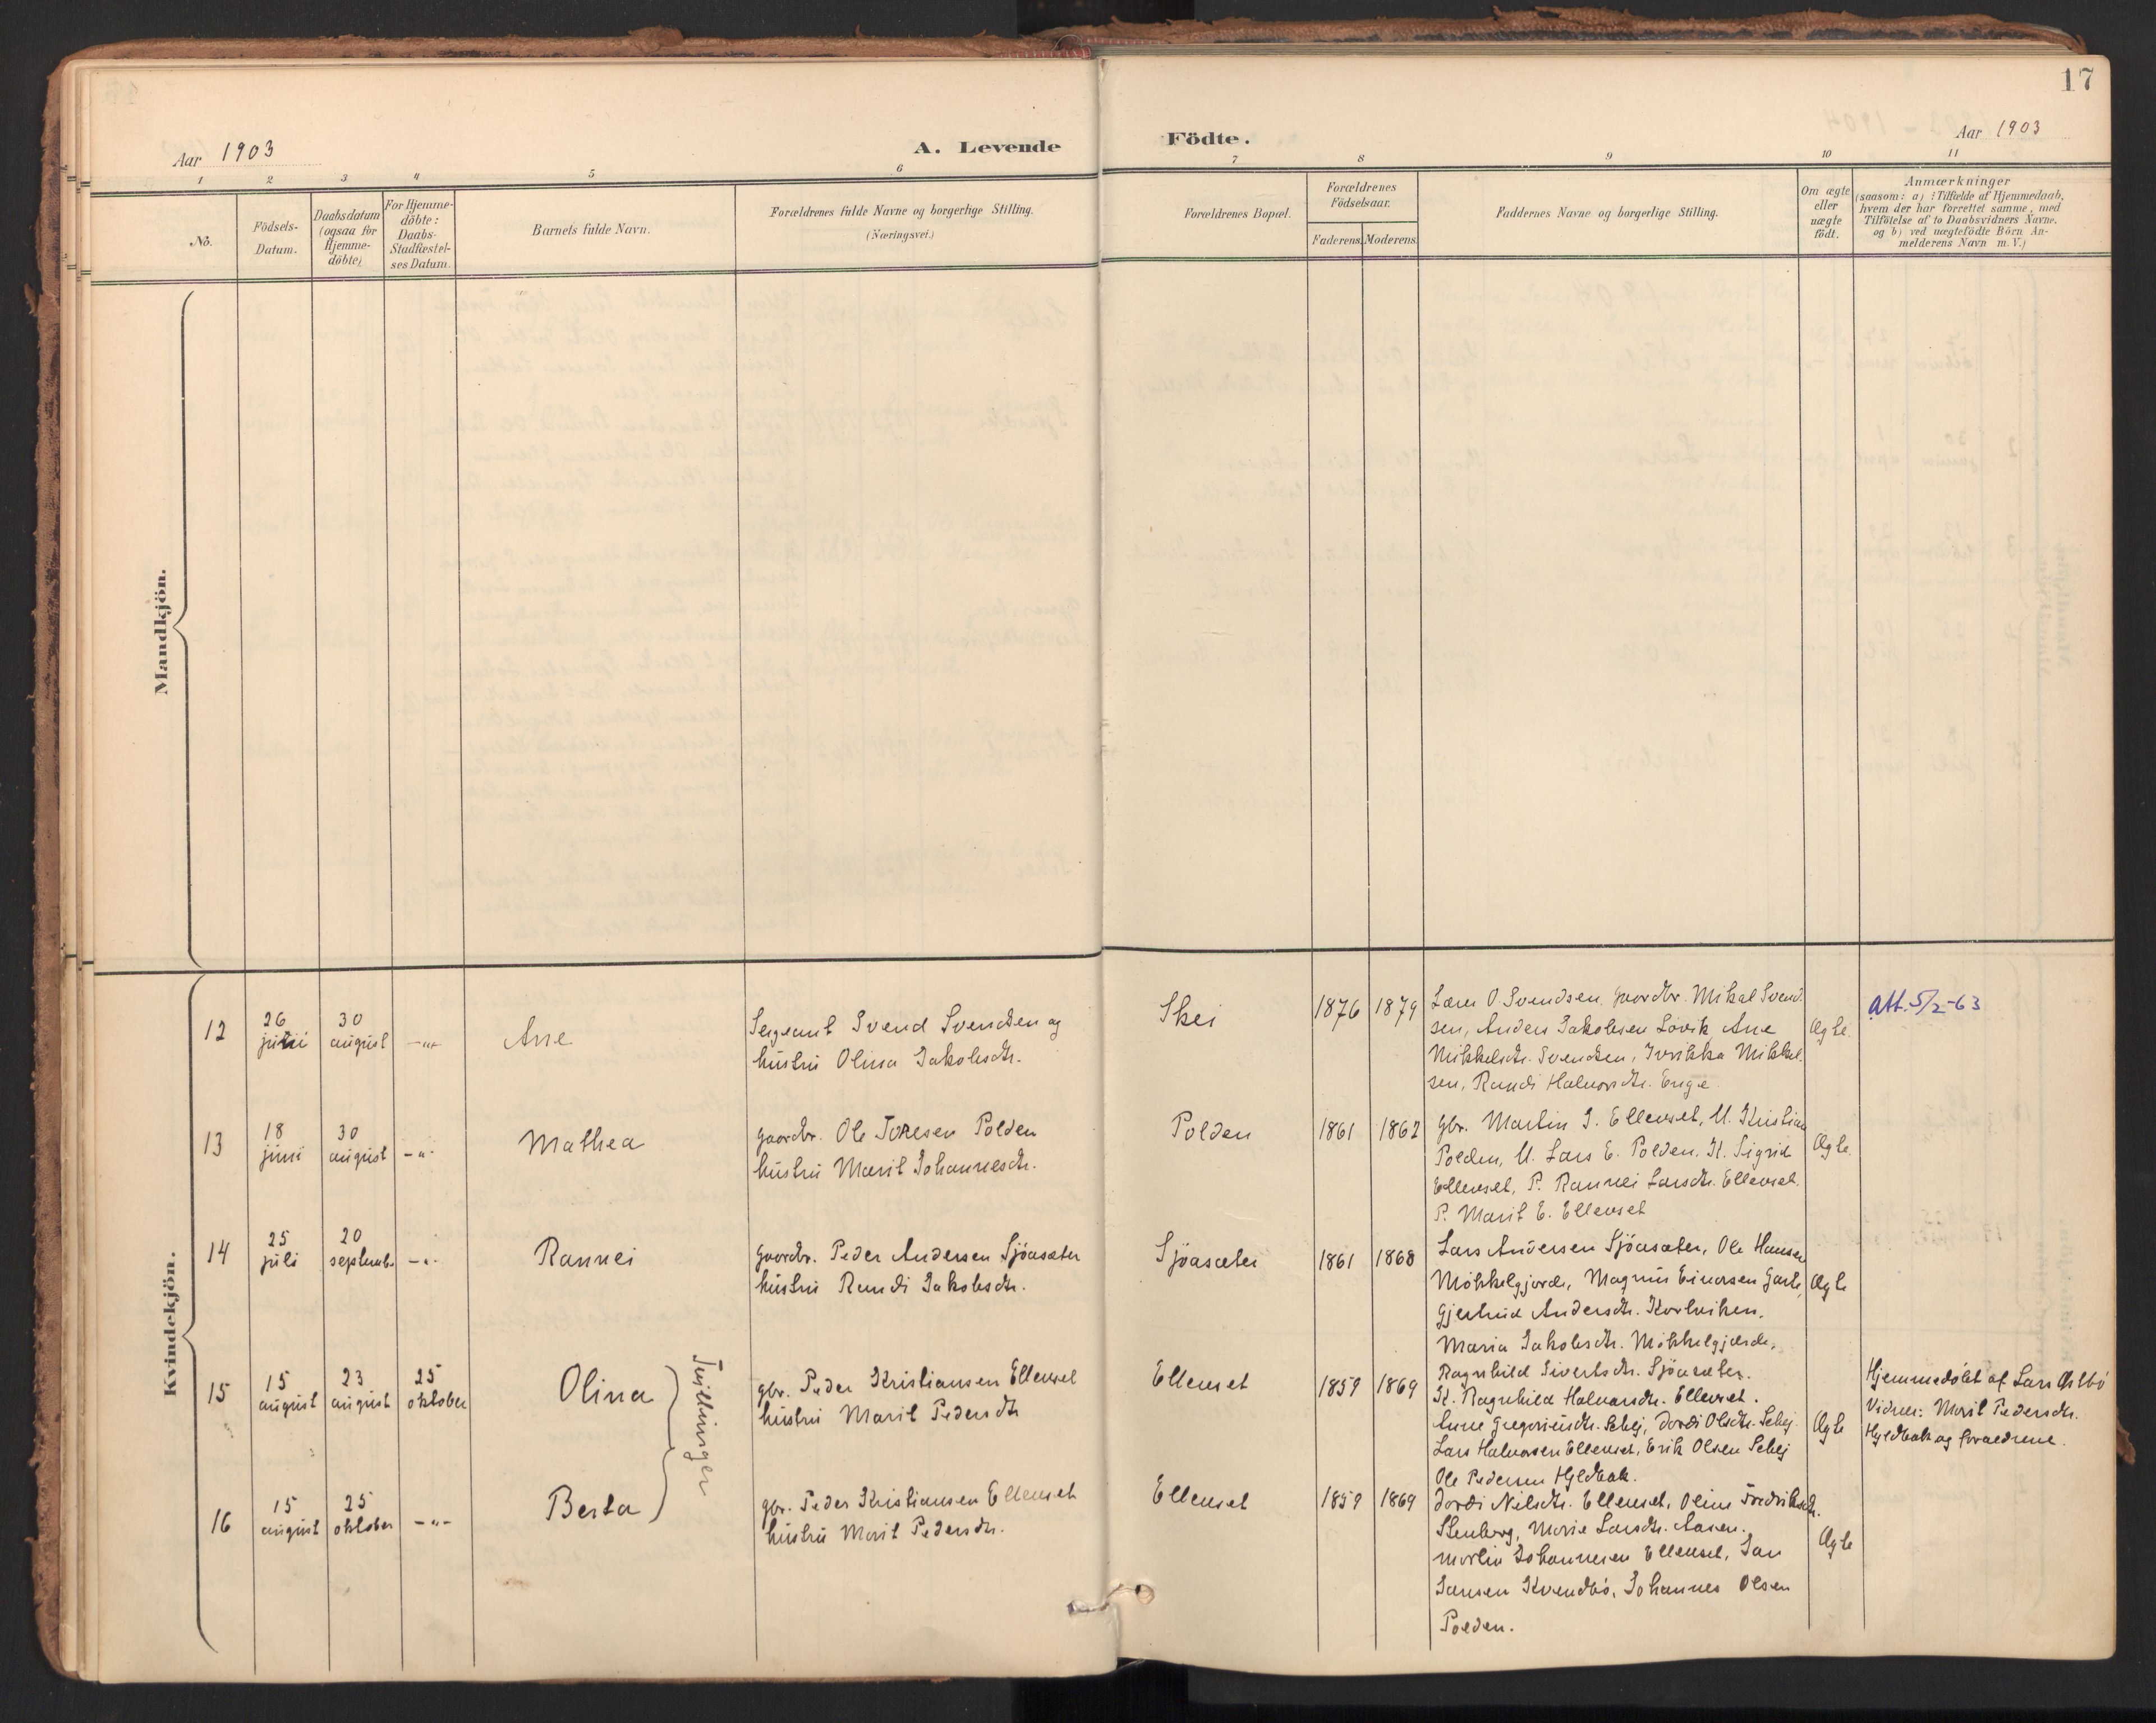 17
Aar 1903
A. Levende
Födte.
Aar 1903
1 2 3 4 5 6 7 8 9 10 11
No.
Födsels-
Datum.
Daabsdatum
(ogsaa for
Hjemme-
döbte)
For Hjemme-
döbte:
Daabs-
Stadfæstel-
ses Datum.
Barnets fulde Navn.
Forældrenes fulde Navne og borgerlige Stilling.
(Næringsvei.)
Forældrenes Bopæl.
Forældrenes
Födselsaar.
Faderens. Moderens.
Faddernes Navne og borgerlige Stilling.
Om ægte
eller
uægte
födt.
Anmærkninger
(saasom: a) i Tilfælde af Hjemmedaab,
hvem der har forrettet samme, med
Tilföielse af to Daabsvidners Navne,
og b) ved uægtefödte Börn An-
melderens Navn m. V.)
Mandkjön.
Kvindekjön.
12
26
juni
30
august
-"-
Ane
Sergeant Svend Svendsen og
hustru Olina Jakobsdtr.
Skei
1876 1879
Lærer O. Svendsen, Gaardbr. Mikal Svend-
sen, Anders Jakobsen Lövik, Ane
Mikkelsdtr. Svendsen, Mikkel-
sen, Randi Halvorsdtr. Enge
Ægte.
Att. 5/2-63
13
18
juni
30
august
-"-
Mathea
gaardbr. Ole Toresen Polden
hustru Marit Johannesdtr.
Polden
1861 1862
gbr. Martin J. Ellevset, U. Kristian
Polden, U. Lars E. Polden, K. Sigrid
Ellevset, P. Rannei Larsdtr. Ellevset.
P. Marit E. Ellevset
Ægte.
14
25
juli
20
septemb.
-"-
Rannei
gaardbr. Peder Andersen Sjöasæter
hustru Randi Jakobsdtr.
Sjöasæter
1861 1868
Lars Andersen Sjöasæter, Ole Hansen
Mökkelgjærde, Magnus Einarsen
Gjertrud Andersdtr. Kortviken,
Maria Jakobsdtr. Mökkelgjærde,
Ragnhild Sivertsdtr. Sjöasæter.
Ægte
15
15
august
23
august
25
oktober
Olina
Tvillinger
gbr. Peder Kristiansen Ellevset
hustru Marit Pedersdtr
Ellevset
1859 1869
K. Ragnhild Halvorsdtr. Ellevset.
Anne Gregoriusdtr. Schej, Dordi Olsdtr. Schej
Lars Halvorsen Ellevset, Erik Olsen Schej
Ole Pedersen Hyldbak.
Ægte
Hjemmedöbt af Lars Østbö
Vidner: Marit Pedersdtr.
Hyldbak og forældrene.
16
15
august
25
oktober
-"-
Berta
gbr. Peder Kristiansen Ellevset
hustru Marit Pedersdtr.
Ellevset
1859 1869
Dordi Nilsdtr. Ellevset, Oline Fredriksdtr.
Stenberg, Marie Larsdtr. Aasen.
Martin Johannesen Ellevset, Jan
Jansen Kvendbö, Johannes Olsen
Polden.
Ægte